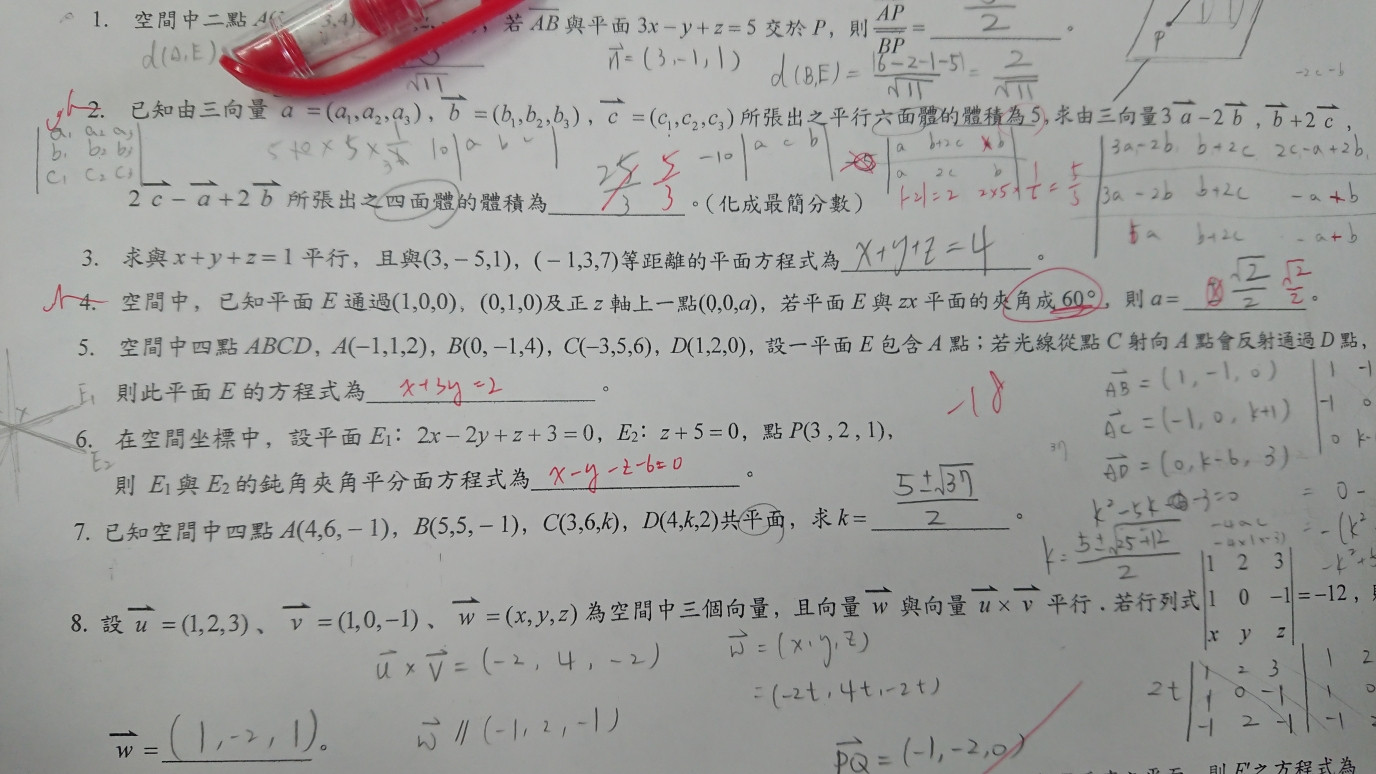 1. 空間中二點 A( 3,4) , 若 AB 與平面 3x−y+z=5 交於 P，則 AP/BP = 2 。
d(A,E) √11 n=(3,-1,1) d(B,E) = |6-2-1-5|/√11 = 2/√11 P
-2c-b
2. 已知由三向量 a =(a₁,a₂,a₃)，b =(b₁,b₂,b₃)，c =(c₁,c₂,c₃)所張出之平行六面體的體積為5，求由三向量3a−2b，b+2c，
a₁ a₂ a₃ 10|a b c| -10|a c b| |a b+2c b| |3a-2b b+2c 2c-a+2b|
b₁ b₂ b₃
c₁ c₂ c₃ a 2c b 3a-2b b+2c -a+b
2c−a+2b 所張出之四面體的體積為 25/3 5/3 。（化成最簡分數） |-2|=2 2×5× = 5/3
a b+2c -a+b
3. 求與 x+y+z=1 平行，且與(3,−5,1)，(−1,3,7)等距離的平面方程式為 x+y+z=4 。
4. 空間中，已知平面 E 通過(1,0,0)，(0,1,0)及正 z 軸上一點(0,0,a)，若平面 E 與 zx 平面的夾角成 60°，則 a= √2/2 √2/2 。
5. 空間中四點 ABCD，A(−1,1,2)，B(0,−1,4)，C(−3,5,6)，D(1,2,0)，設一平面 E 包含 A 點；若光線從點 C 射向 A 點會反射通過 D 點，
則此平面 E 的方程式為 x+3y=2 。
-18
AB = (1,-1,0)
AC = (-1,0,k+1)
AD = (0,k-6,3)
E₁
E₂
6. 在空間坐標中，設平面 E₁：2x−2y+z+3=0，E₂：z+5=0，點 P(3,2,1)，
則 E₁ 與 E₂ 的鈍角夾角平分面方程式為 x-y-z-6=0 。
7. 已知空間中四點 A(4,6,−1)，B(5,5,−1)，C(3,6,k)，D(4,k,2)共平面，求 k= 5±√37/2 。
k²-5k-3=0
k= 5±√25+12/2
8. 設 u=(1,2,3)、v=(1,0,−1)、w=(x,y,z)為空間中三個向量，且向量 w 與向量 u×v 平行．若行列式 |1 2 3|
1 0 −1 =−12，
x y z
u×v = (-2,4,-2) w = (x,y,z)
= (-2t,4t,-2t)
2t |1 2 3| 1 2
1 0 -1 1 0
-1 2 -1 -1 2
w = (1,-2,1)。 w // (-1,2,-1)
PQ = (-1,-2,0)
則 F之方程式為